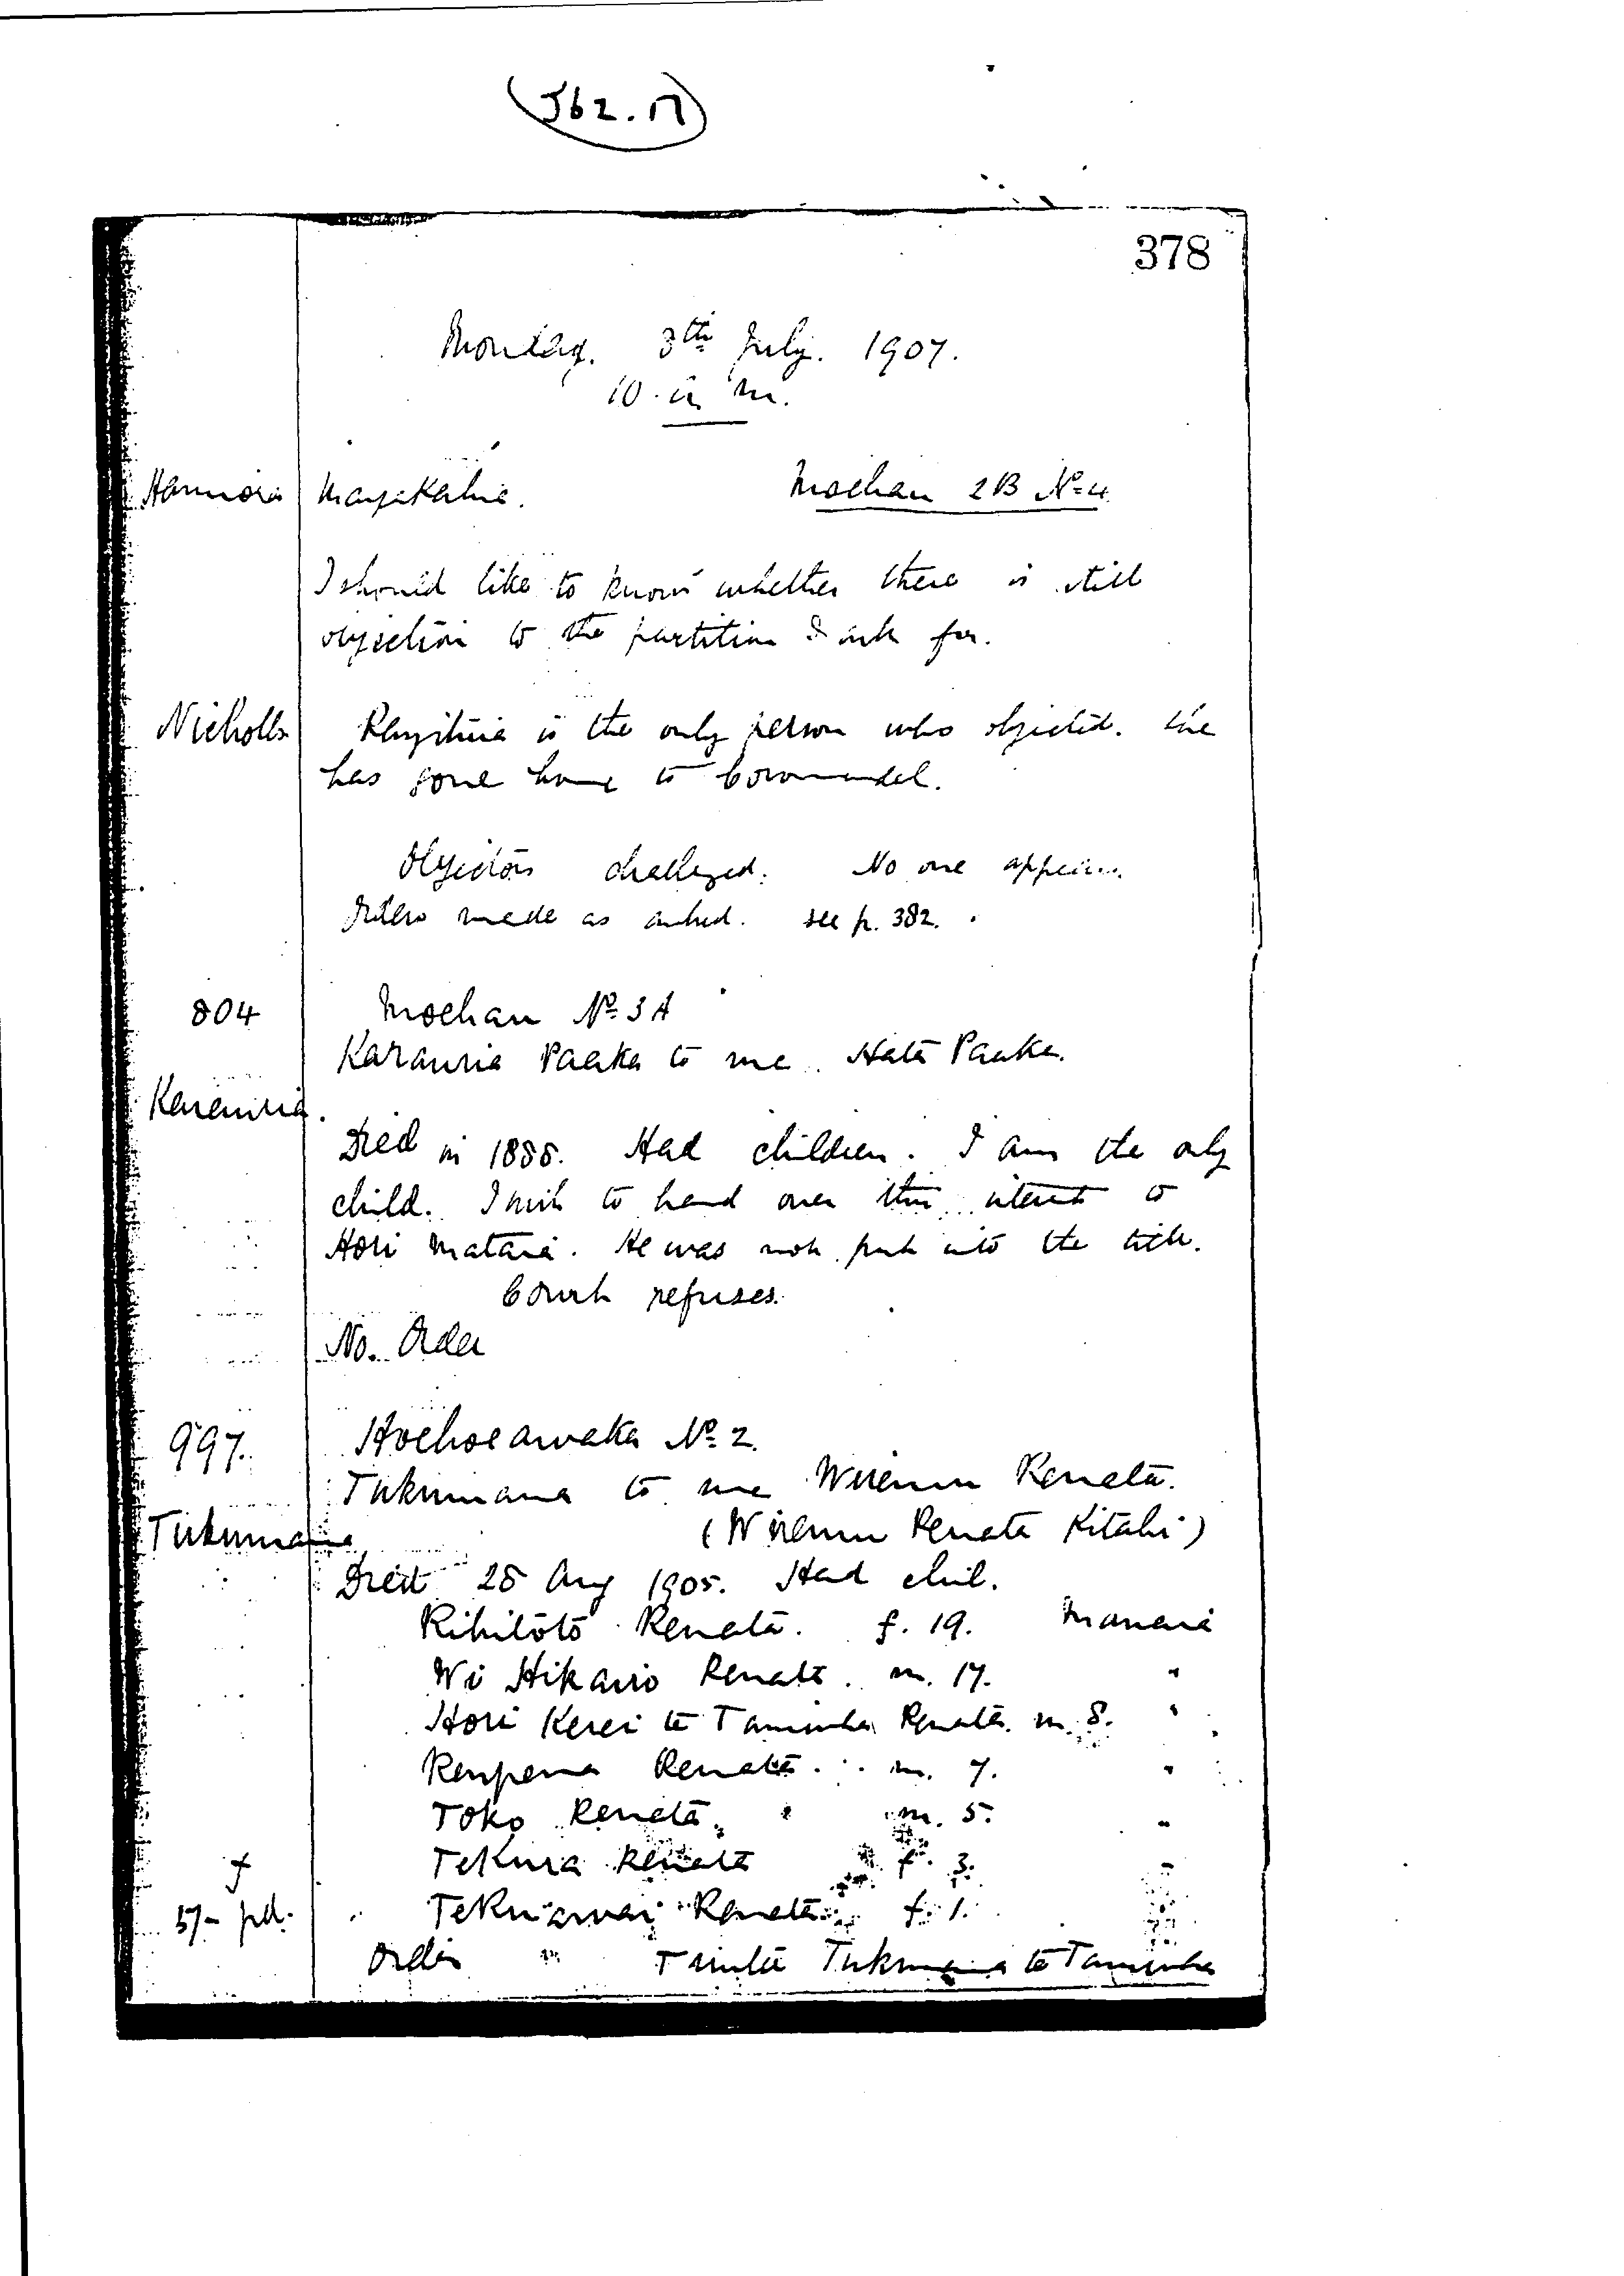 J62.17
378
Monday. 8th July. 1907.
10. a. m.
Hamiora Mangakahia. Moehau 2B No 4
I should like to know whether there is still
objection to the partition I ask for.
Nicholls Rangituia is the only person who objected. She
has gone home to Coromandel.
Objectors challenged. No one appears.
Order made as asked. see p. 382.
804 Moehau No 3A
Karauria Paaka to me Hata Paaka.
Karauria.
Died in 1888. Had children. I am the only
child. I wish to hand over this interest to
Hori Mataia. He was not put into the title.
Court refuses.
No Order
997. Hoehoeawaka No 2.
Tukumana to me Wiremu Renata.
Tukumana (Wiremu Renata Kitahi)
Died 28 Aug 1905. Had chil.
Rihitoto Renata. f. 19. Manaia
Wi Hikairo Renata. m. 17. "
Hori Kerei te Taniwha Renata. m. 8. "
Renpena Renata. m. 7. "
Toko Renata. m. 5. "
Tekura Renata f. 3. "
f
5/- pd. Tekuiawai Renata f. 1. "
Order " Trustee Tukumana te Taniwha